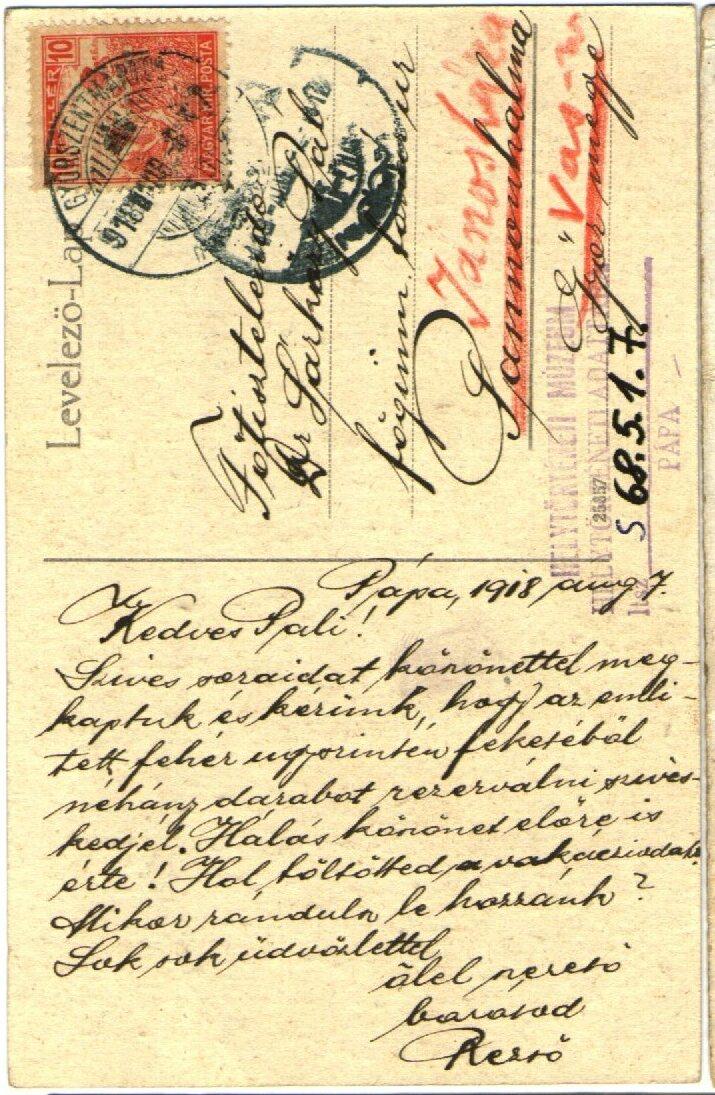 Levelező-Lap
MAGYAR KIR. POSTA
10
GYŐRSZENTMÁRTON
918
Főtisztelendő
Dr Sárközy Pál
főgimn. tanár úr
Pannonhalma
Győr megye
Jánosháza
Vas-m
HELYTÖRTÉNETI MÚZEUM
HELYTÖRTÉNETI ADATTÁR
25857
ltsz
S 68.5.1.7.
PÁPA
Pápa, 1918 aug 7.
Kedves Pali!
Szives soraidat köszönettel meg-
kaptuk és kérünk, hogy az emli-
tett fehér ugyszintén feketéből
néhány darabot rezerválni szives-
kedjél. Hálás köszönet előre is
érte! Hol töltötted a vakációdat?
Mikor rándulsz le hozzánk?
Sok sok üdvözlettel
ölel szerető
barátod
Rezső